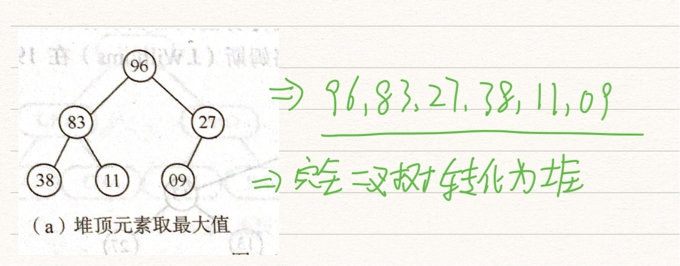 96
83
27
38
11
09
(a) 堆顶元素取最大值
⇒ 96, 83, 27, 38, 11, 09
⇒ 完全二叉树转化为堆